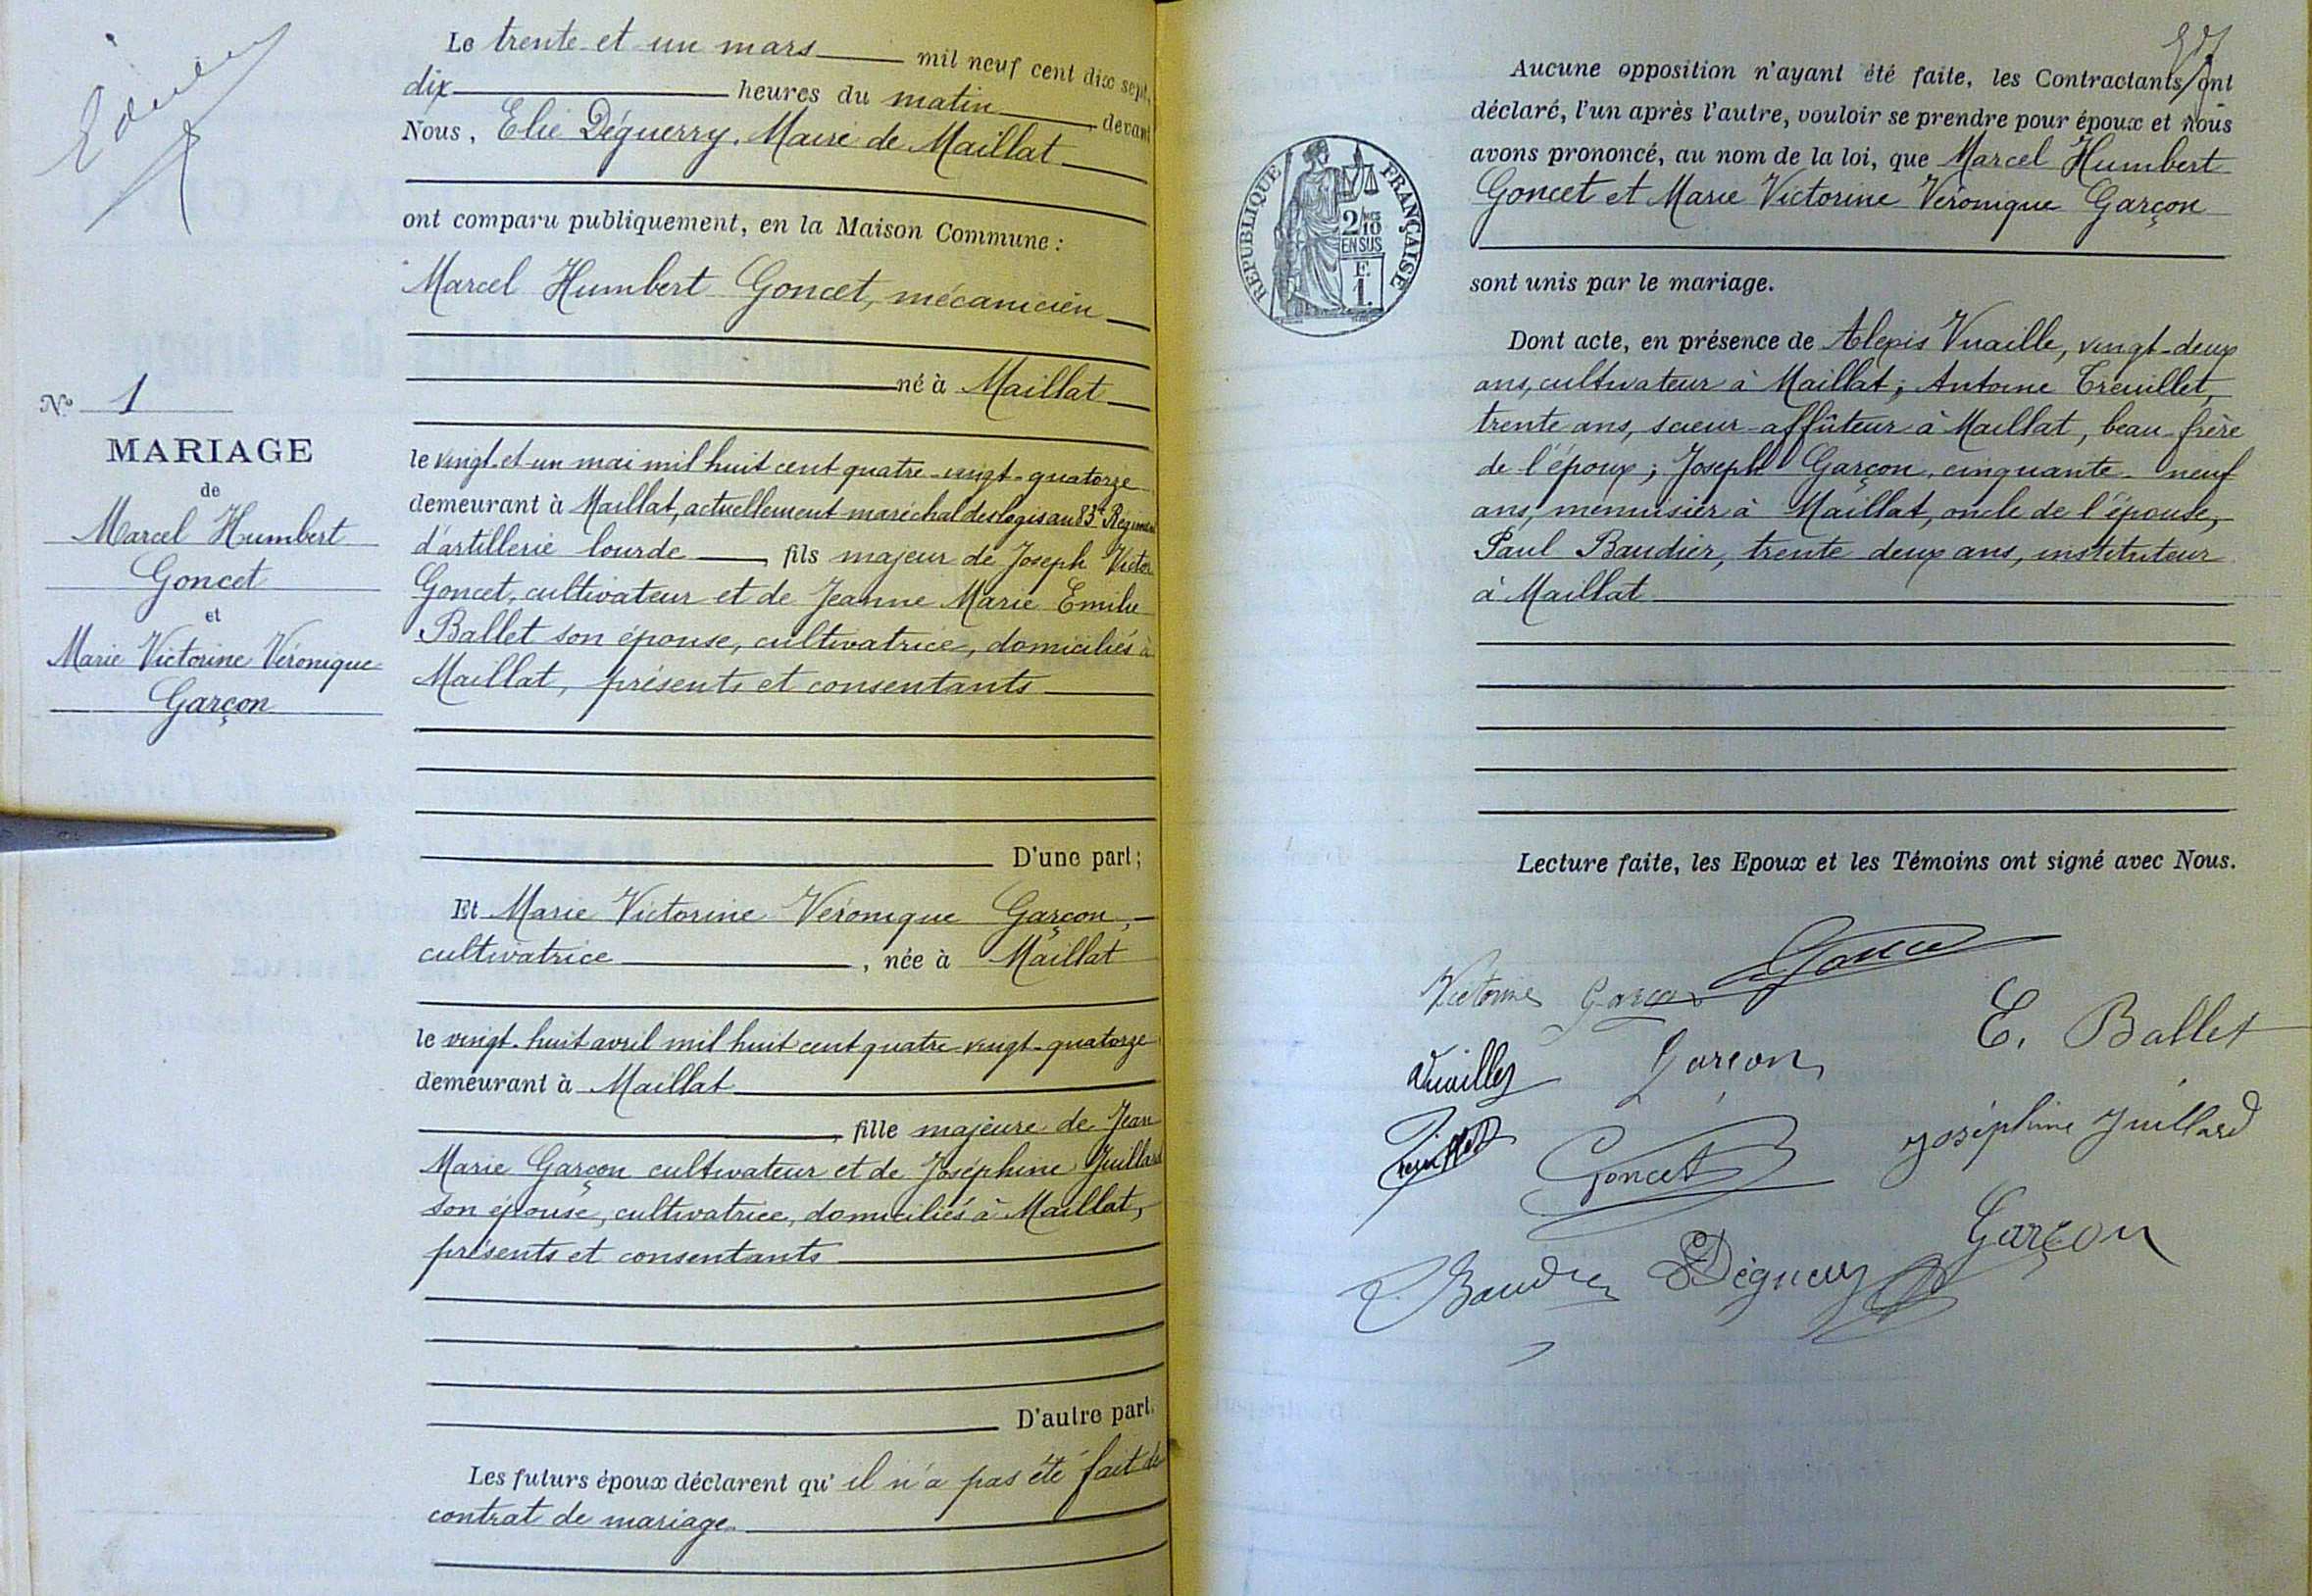 Le trente et un mars mil neuf cent dix sept,
dix heures du matin, devant
Nous, Elie Déguerry, Maire de Maillat
ont comparu publiquement, en la Maison Commune :
Marcel Humbert Goncet, mécanicien
né à Maillat
le vingt et un mai mil huit cent quatre-vingt-quatorze
demeurant à Maillat, actuellement maréchal des logis au 83e Régiment
d'artillerie lourde, fils majeur de Joseph Victor
Goncet, cultivateur et de Jeanne Marie Emilie
Ballet son épouse, cultivatrice, domiciliés à
Maillat, présents et consentants
D'une part ;
Et Marie Victorine Véronique Garçon,
cultivatrice, née à Maillat
le vingt-huit avril mil huit cent quatre-vingt-quatorze
demeurant à Maillat
, fille majeure de Jean
Marie Garçon cultivateur et de Joséphine Juillard
son épouse, cultivatrice, domiciliés à Maillat,
présents et consentants
D'autre part.
Les futurs époux déclarent qu'il n'a pas été fait de
contrat de mariage.
No 1
MARIAGE
de
Marcel Humbert
Goncet
et
Marie Victorine Véronique
Garçon
Aucune opposition n'ayant été faite, les Contractants ont
déclaré, l'un après l'autre, vouloir se prendre pour époux et nous
avons prononcé, au nom de la loi, que Marcel Humbert
Goncet et Marie Victorine Véronique Garçon
sont unis par le mariage.
Dont acte, en présence de Alexis Vuaille, vingt-deux
ans, cultivateur à Maillat ; Antoine Treuillet,
trente ans, scieur-affûteur à Maillat, beau-frère
de l'époux ; Joseph Garçon, cinquante-neuf
ans, menuisier à Maillat, oncle de l'épouse,
Paul Baudier, trente deux ans, instituteur
à Maillat
RÉPUBLIQUE FRANÇAISE
2/10
EN SUS
F.
1.
Lecture faite, les Epoux et les Témoins ont signé avec Nous.
Victorine Garçon
E. Ballet
Garçon
Joséphine Juillard
Goncet
Garçon
Baudier
E Déguerry